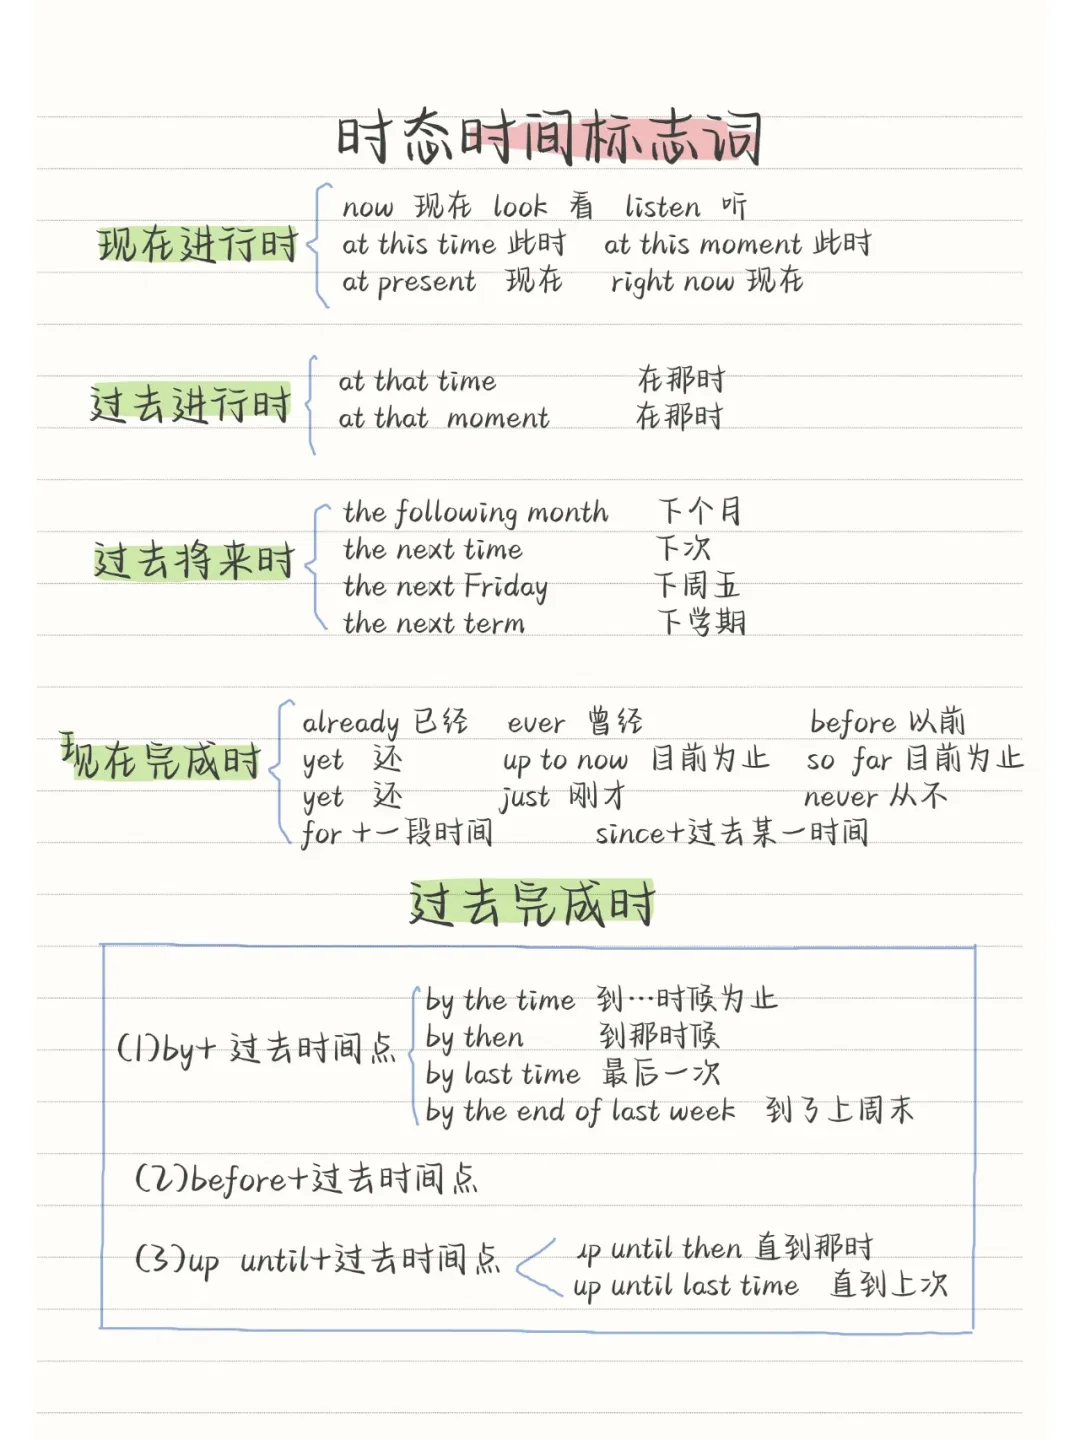 时态时间标志词
现在进行时
now 现在 look 看 listen 听
at this time 此时 at this moment 此时
at present 现在 right now 现在
过去进行时
at that time 在那时
at that moment 在那时
过去将来时
the following month 下个月
the next time 下次
the next Friday 下周五
the next term 下学期
现在完成时
already 已经 ever 曾经 before 以前
yet 还 up to now 目前为止 so far 目前为止
yet 还 just 刚才 never 从不
for+一段时间 since+过去某一时间
过去完成时
(1)by+过去时间点
by the time 到…时候为止
by then 到那时候
by last time 最后一次
by the end of last week 到了上周末
(2)before+过去时间点
(3)up until+过去时间点
up until then 直到那时
up until last time 直到上次